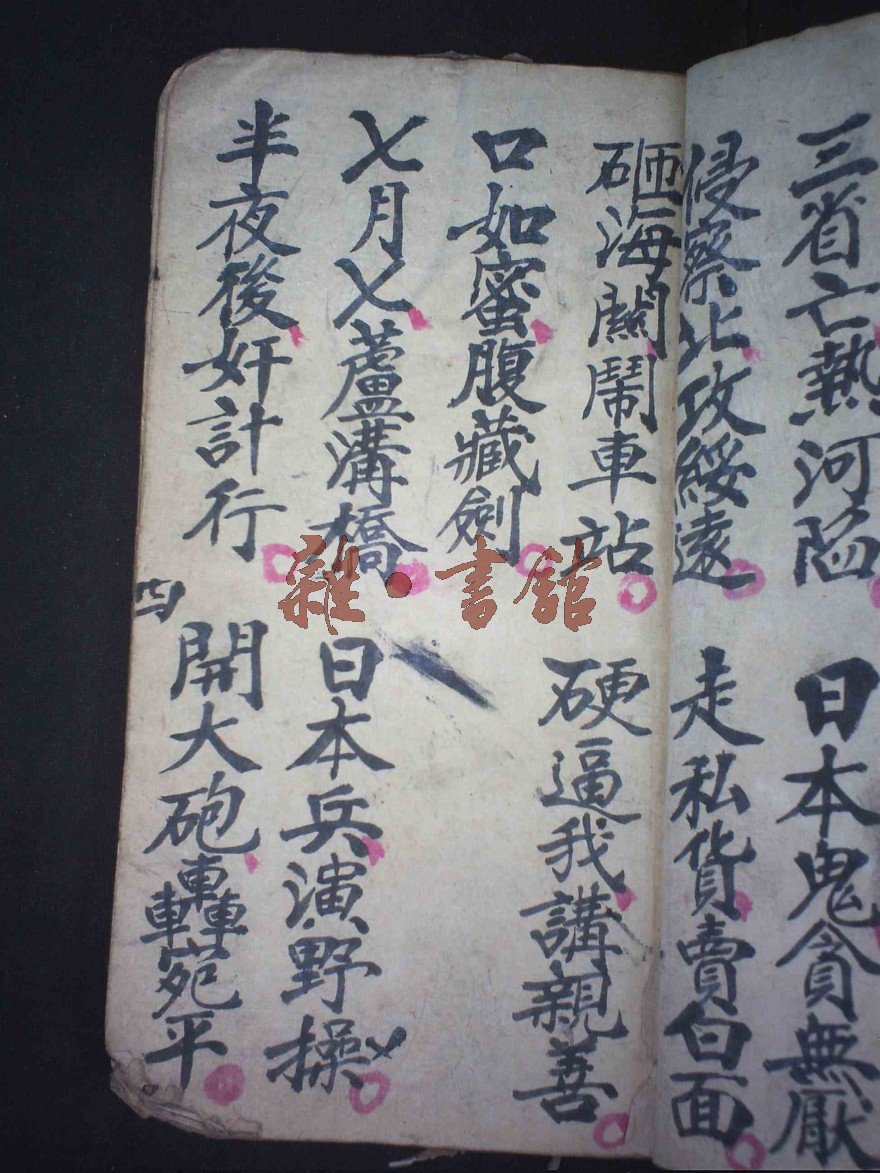 三省亡熱河陷 日本鬼貪無厭
侵察北攻綏遠 走私貨賣白面
砸海關鬧車站 硬逼我講親善
口如蜜腹藏劍
七月七蘆溝橋 日本兵演野操
半夜後奸計行 開大砲轟宛平
雜·書館